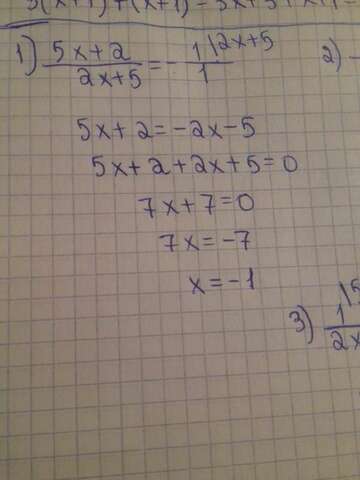 3(x+1)+(x+1)=3x+3+x+1=
1) (5x+2)/(2x+5) = -1/1 |2x+5
2) -
5x+2=-2x-5
5x+2+2x+5=0
7x+7=0
7x=-7
x=-1
3) 1/2x